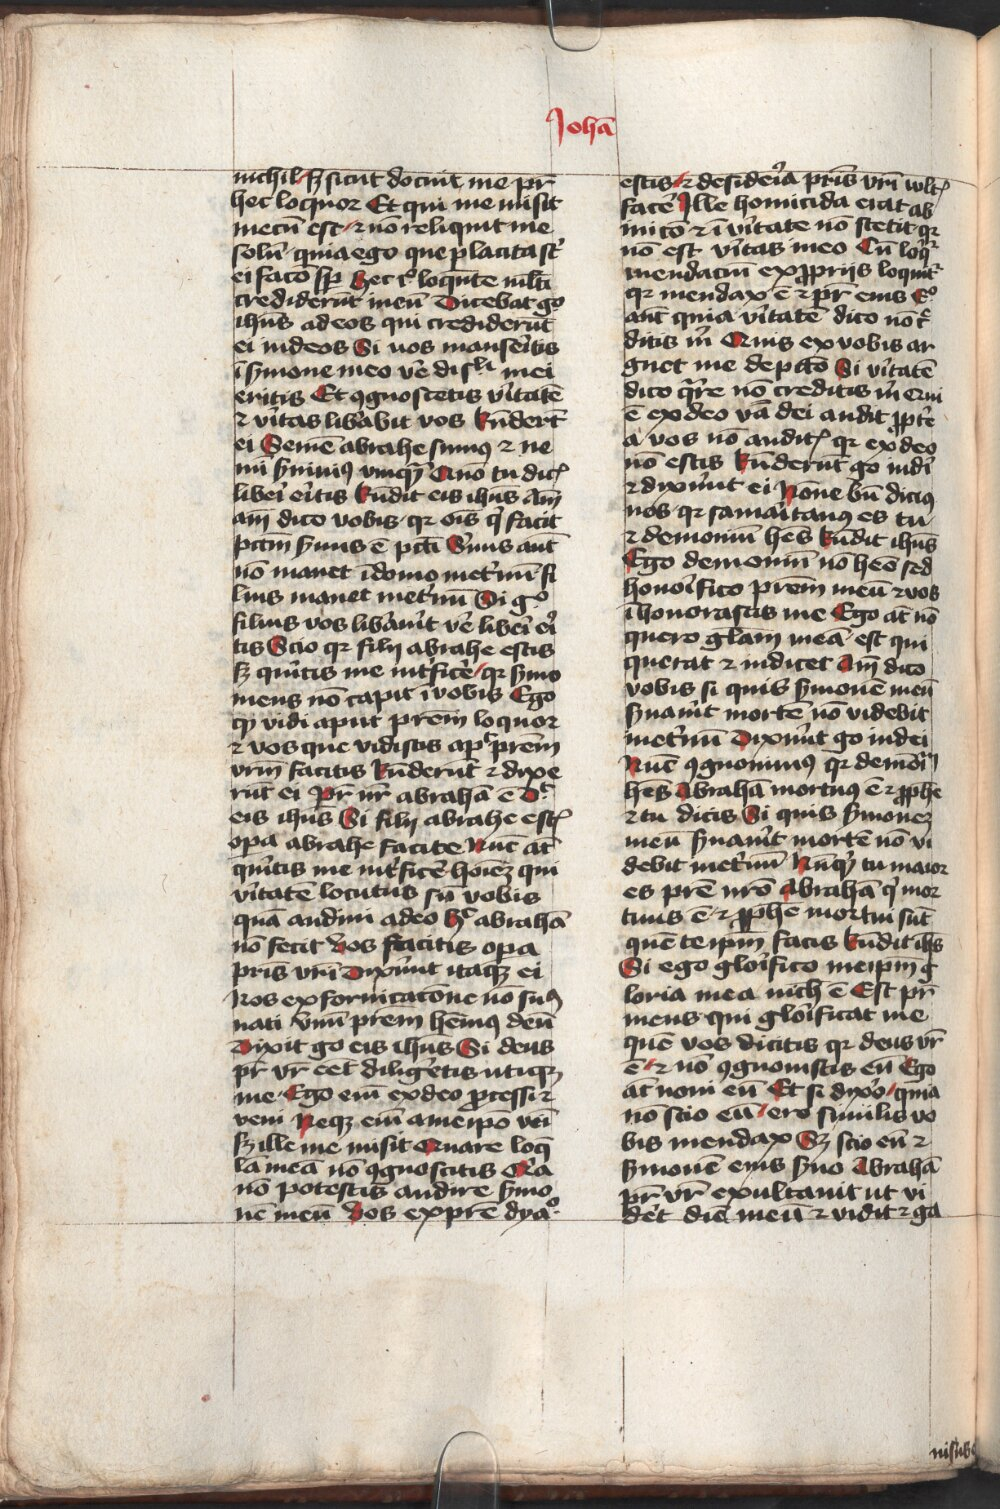 Johā
nichil / sʒ sicut docuit me pr̄
hec loquor Et qui me misit
mecū est / ⁊ nō reliquit me
solū quia ego que placita st̄
ei facō sp̄ Hec eo loqn̄te multi
crediderūt in eū Dicebat g̊
ihūs ad eos qui crediderūt
ei iudeos Si uos mansēitis
ī smone meo vē discli mei
eritis Et ꝯgnoscetis v̄itatē
⁊ v̄itas lib̄abit vos Rn̄derūt
ei Semē abrahe sumꝰ ⁊ ne
mi s̄uiuiꝰ vnqꝫ Quō tu dic̄
liberi eritis Rn̄dit eis ihūs Am̄
am̄ dico vobis qr oīs q̄ facit
pctm̄ s̄uus ē pcti S̄uus aut̄
nō manet ī domo met̄nū fi
lius manet met̄nū Si g̊
filius vos lib̄auit v̄e liberi ei
tis Scio qr filij abrahe estis
sʒ queritis me int̄ficē / qr smo
meus nō capit ī vobis Ego
qꝫ vidi aput prēm loquor
⁊ vos que vidistis apꝰ prēm
vrm̄ facitis Rn̄derūt ⁊ dixe
rūt ei Pr̄ nr̄ abrahā ē Dꝫ
eis ihūs Si filij abrahe estꝭ
opa abrahe facite Nūc at̄
queritis me int̄ficē hoiēʒ qui
v̄itatē locutus sū vobis
quā audiui a deo hͦ abrahā
nō fecit Vos facitis opa
pris vri Dixerūt itaqꝫ ei
Nos ex fornicatōne nō suꝰ
nati vnū prēm hēmꝰ deū
Dixit go eis ihūs Si deus
pr̄ vr̄ eēt diligetis utiqꝫ
me Ego em̄ ex deo pcessi ⁊
veni Neqꝫ em̄ a meipō veī
sʒ ille me misit Quare loq̄
lā meā nō ꝯgnoscitis Qa
nō potestis audire smo
nē meū Vos ex prē dyaͦ
estis / ⁊ desideia pris vri ultꝭ
facē Ille homicida erat ab
initō ⁊ ī v̄itate nō stetit qr
nō est v̄itas in eo Cū loqͬ
mendaciū ex ppriis loquitͬ
qr mendax ē ⁊ pr̄ eius Eͦ
aut̄ quia v̄itatē dico nō cͬ
ditis m̄ Quis ex vobis ar
guet me de pctō Si v̄itatē
dico qre nō creditis m̄ Qui
ē ex deo v̄ba dei audit ppte
a vos nō auditꝭ qr ex deo
nō estis Rn̄derūt go iudi
⁊ dixerūt ei Nōne bn̄ dicimꝰ
nos qr samaitanꝰ es tu
⁊ demoniū hes Rn̄dit ihūs
Ego demoniū nō heō sed
honoifico prēm meū ⁊ vos
ī honorastis me Ego at̄ nō
quero gl̄am meā est qui
querat ⁊ iudicet Am̄ dico
vobis si quis smonē meū
s̄uauit mortē nō videbit
met̄nū Dixerūt go iudei
Nūc ꝯgnouimꝰ qr demōīū
hēs Abrahā mortuꝰ ē ⁊ pphe
⁊ tu dicis Si quis smoneʒ
meū s̄uauit mortē nō vi
debit met̄nū Nūqꝫ tu maior
es prē nrō abrahā q̄ mor
tuus ē ⁊ pphe mortui sūt
quē te ipm̄ facis Rn̄dit ihs
Si ego gloifico meipm̄ g
loria mea nich ē Est pr̄
meus qui gloificat me
quē vos dicitis qr deus vr̄
ē / ⁊ nō ꝯgnouistis eū Ego
at̄ noui eū Et si dixo / quia
no scio eū / ero similis vo
bis mendax Sʒ scio eū ⁊
smonē eius s̄uo Abrahā
pr̄ vr̄ exultauit ut vi
det diē meū ⁊ vidit ⁊ ga